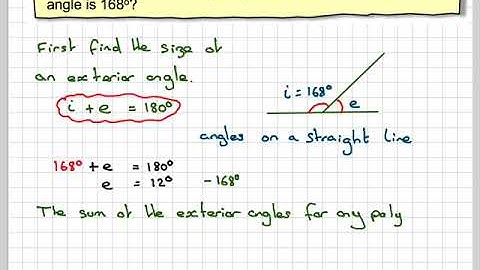 angle is 168º?
First find the size of
an exterior angle.
i + e = 180º
i = 168º
e
angles on a straight line
168º + e = 180º
e = 12º -168º
The sum of the exterior angles for any poly